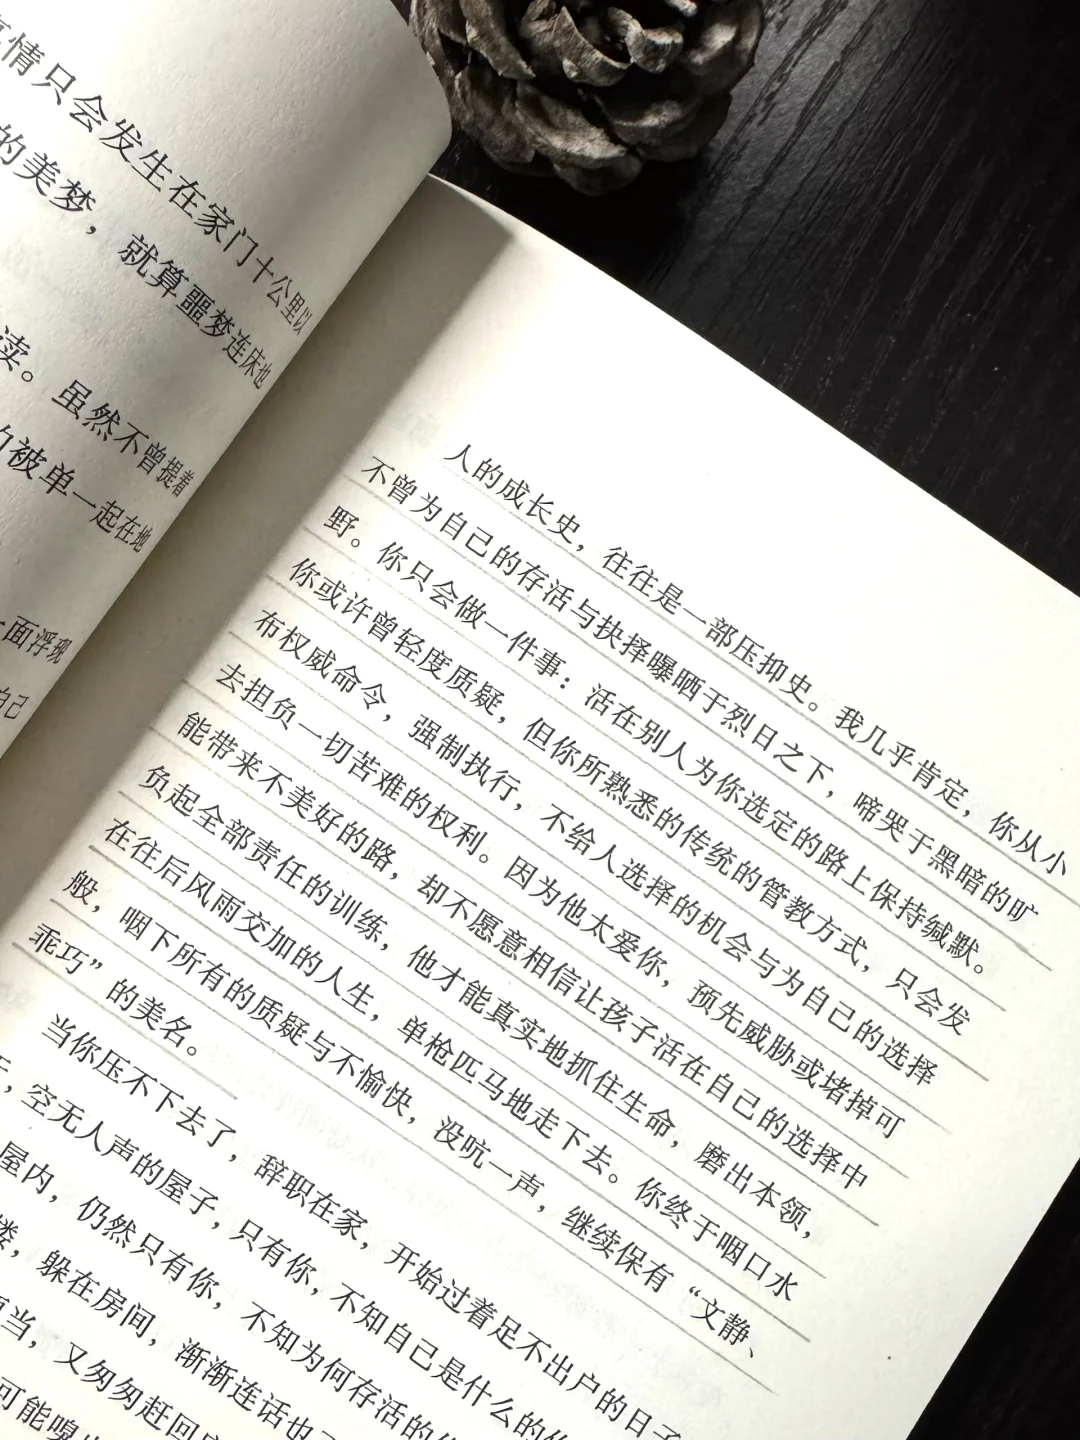 情只会发生在家门十公里以
的美梦，就算噩梦连床也
读。虽然不曾提着
的被单一起在地
一面浮现
自己
人的成长史，往往是一部压抑史。我几乎肯定，你从小
不曾为自己的存活与抉择曝晒于烈日之下，啼哭于黑暗的旷
野。你只会做一件事：活在别人为你选定的路上保持缄默。
你或许曾轻度质疑，但你所熟悉的传统的管教方式，只会发
布权威命令，强制执行，不给人选择的机会与为自己的选择
去担负一切苦难的权利。因为他太爱你，预先威胁或堵掉可
能带来不美好的路，却不愿意相信让孩子活在自己的选择中
负起全部责任的训练，他才能真实地抓住生命，磨出本领，
在往后风雨交加的人生，单枪匹马地走下去。你终于咽口水
般，咽下所有的质疑与不愉快，没吭一声，继续保有“文静、
乖巧”的美名。
当你压不下去了，辞职在家，开始过着足不出户的日子
，空无人声的屋子，只有你，不知自己是什么的你
屋内，仍然只有你，不知为何存活的
楼，躲在房间，渐渐连话也
当，又匆匆赶回
可能嗅